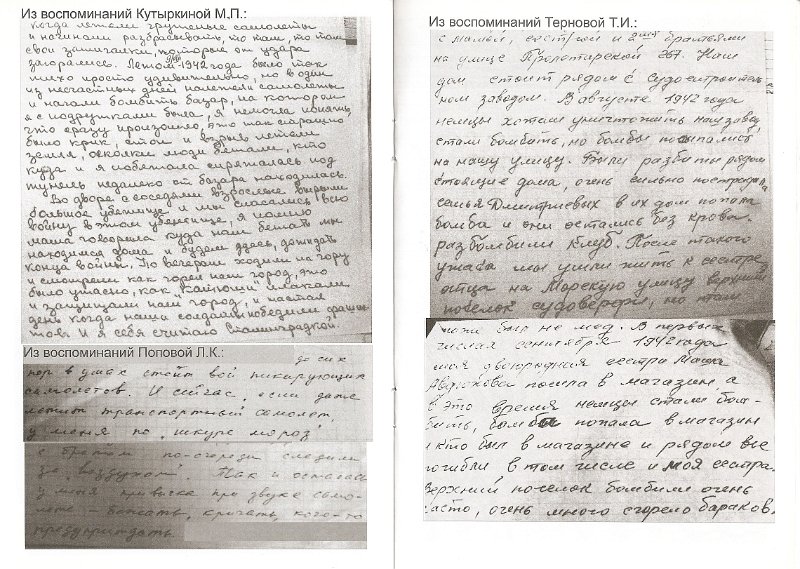 Из воспоминаний Кутыркиной М.П.:
когда летели груженые самолеты
и начинали разбрасывать, то там, то там
свои зажигалки, которые от удара
загорались. Летом 1942 года было так
тихо просто удивительно, но в один
из несчастных дней налетели самолеты
и начали бомбить базар, на котором
я с подружками была, я немогла понять,
что сразу произошло, это так страшно,
было крик, стон и взрыв летели
земля, осколки люди бежали, кто
куда и я побежала спряталась под
тунель недалеко от базара находилась.
Во дворе с соседями взрослые вырыли
большое убежище и мы спасались всю
войну в этом убежище, я помню
мама говорила куда нам бежать мы
находимся дома и будем здесь, дожидать
конца войны. По вечерам ходили на гору
и смотрели как горел наш город, это
было ужасно, как "Катюши" 
и защищали наш город, и настал
день когда наши солдаты победили фашис
тов. И я себя считаю Сталинградкой.
Из воспоминаний Поповой Л.К.:
до сих
пор в ушах стоит вой пикирующих
самолетов. И сейчас, если даже
летит транспортный самолет,
у меня по "шкуре мороз"
с братом по-очереди следили
за "воздухом". Так и осталась
у меня привычка при звуке само-
лета - бежать, кричать, кого-то
предупреждать.
Из воспоминаний Терновой Т.И.:
с мамой, сестрой и 2мя братьями
на улице Пролетарской 267. Наш
дом стоит рядом с Судостроитель
ном заводом. В августе 1942 года
немцы хотели уничтожить наш завод,
стали бомбать, но бомбы посыпались
на нашу улицу. Были разбиты рядом
стоящие дома, очень сильно пострадала
семья Дмитриевых в их дом попала
бомба и они остались без крова.
разбомбили клуб. После такого
ужаса мы ушли жить к сестре
отца на Морскую улицу верхний
поселок судоверфи, но там
тоже был не мёд. В первых
числах сентября 1942 года
моя двоюродная сестра Маша
пошла в магазин а
в это время немцы стали бом-
бить, бомба попала в магазин
и кто был в магазине и рядом все
погибли в том числе и моя сестра.
Верхний поселок бомбили очень
часто, очень много сгорело бараков.